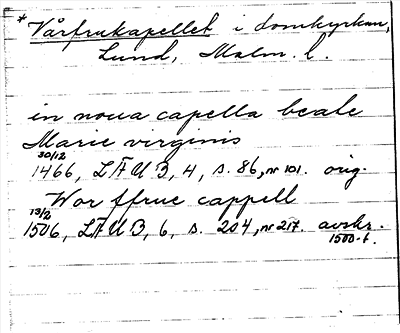 * Vårfrukapellet i domkyrkan,
Lund, Malm. l.
in noua capella beate
Marie virginis
30/12
1466, LÄUB, 4, s. 86, nr 101. orig.
Wor ffrue cappell
13/2
1506, LÄUB, 6, s. 204, nr 217. avskr.
1500-t.